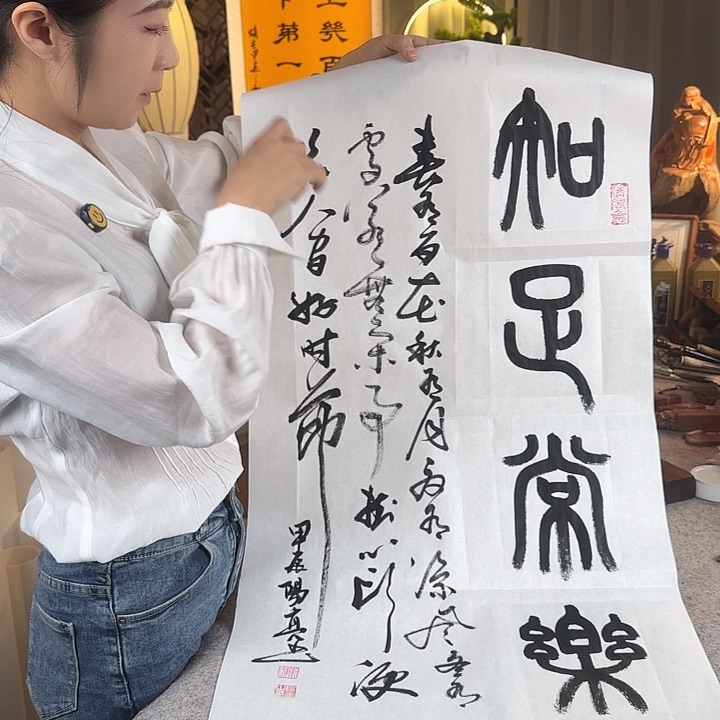 知足常樂
春有百花秋有月夏有涼風冬有
雪若無閑事挂心頭便
是人间好时節
甲辰
第一